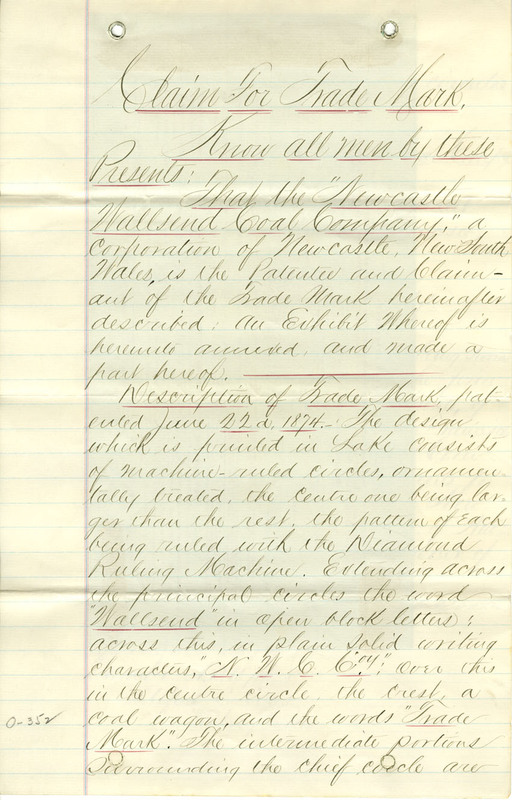 Claim For Trade Mark.
Know all men by these
Presents:
That the "Newcastle
Wallsend Coal Company," a
corporation of Newcastle, New South
Wales, is the Patentee and Claim-
ant of the Trade Mark hereinafter
described: an Exhibit Whereof is
hereunto annexed, and made a
part hereof.
Description of Trade Mark, pat-
ented June 22d, 1874.- The design
which is printed in Lake consists
of machine-ruled circles, ornamen-
tally treated, the centre one being lar-
ger than the rest, the pattern of each
being ruled with the Diamond
Ruling Machine. Extending across
the principal circles the word
"Wallsend" in open block letters;
across this, in plain solid writing
characters, "N. W. C. Coy." Over this
in the centre circle, the crest, a
coal wagon, and the words "Trade
Mark". The intermediate portions
surrounding the chief circle are
0-352